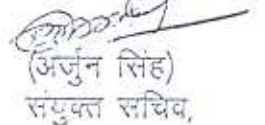 (अर्जुन सिंह)
संयुक्त सचिव,